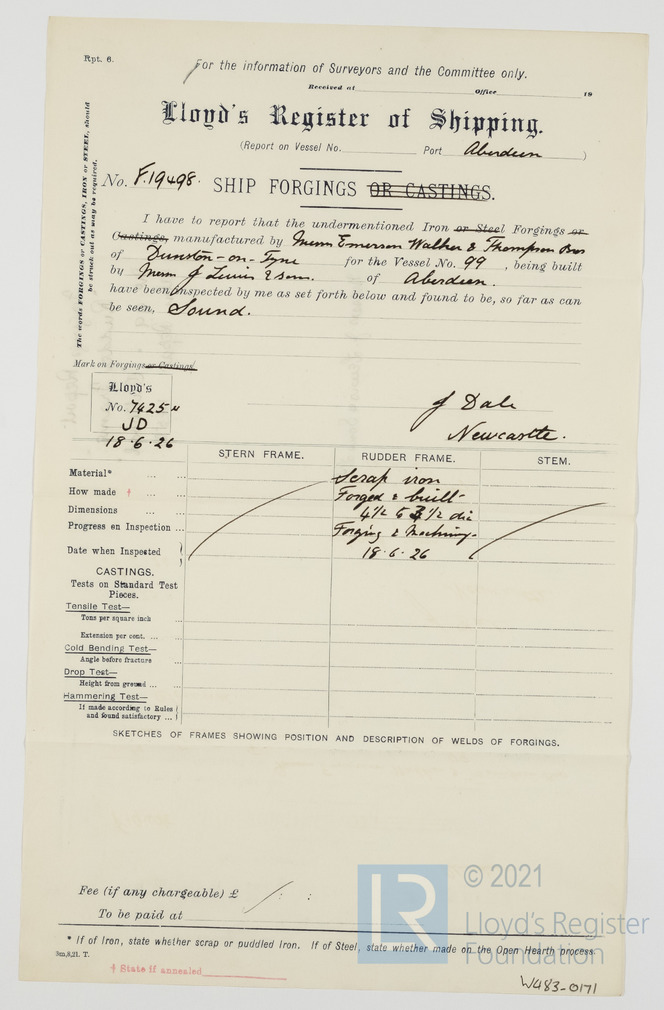 Rpt. 6.
For the information of Surveyors and the Committee only.
Received at Office 19
Lloyd's Register of Shipping.
(Report on Vessel No. Port Aberdeen )
The words FORGINGS or CASTINGS, IRON or STEEL, should
be struck out as may be required.
No. F.19498. SHIP FORGINGS OR CASTINGS.
I have to report that the undermentioned Iron or Steel Forgings or
Castings, manufactured by Messrs Emerson Walker & Thompson Bros
of Dunston-on-Tyne for the Vessel No. 99, being built
by Messrs J Lewis & Sons. of Aberdeen.
have been inspected by me as set forth below and found to be, so far as can
be seen, Sound.
Mark on Forgings or Castings
Lloyd's
No. 7425 N
JD
18.6.26
J Dale
Newcastle.
STERN FRAME. RUDDER FRAME. STEM.
Material* ... ... Scrap iron
How made † ... ... Forged & built
Dimensions ... ... 4½ to 3½ dia
Progress on Inspection ... Forging & Machining.
Date when Inspected 18.6.26
CASTINGS.
Tests on Standard Test
Pieces.
Tensile Test—
Tons per square inch ...
Extension per cent. ... ...
Cold Bending Test—
Angle before fracture ...
Drop Test—
Height from ground ... ...
Hammering Test—
If made according to Rules
and found satisfactory ...
SKETCHES OF FRAMES SHOWING POSITION AND DESCRIPTION OF WELDS OF FORGINGS.
Fee (if any chargeable) £ : :
To be paid at
* If of Iron, state whether scrap or puddled Iron. If of Steel, state whether made on the Open Hearth process.
3m,8,21. T.
† State if annealed
W483-0171
LR
© 2021
Lloyd's Register
Foundation